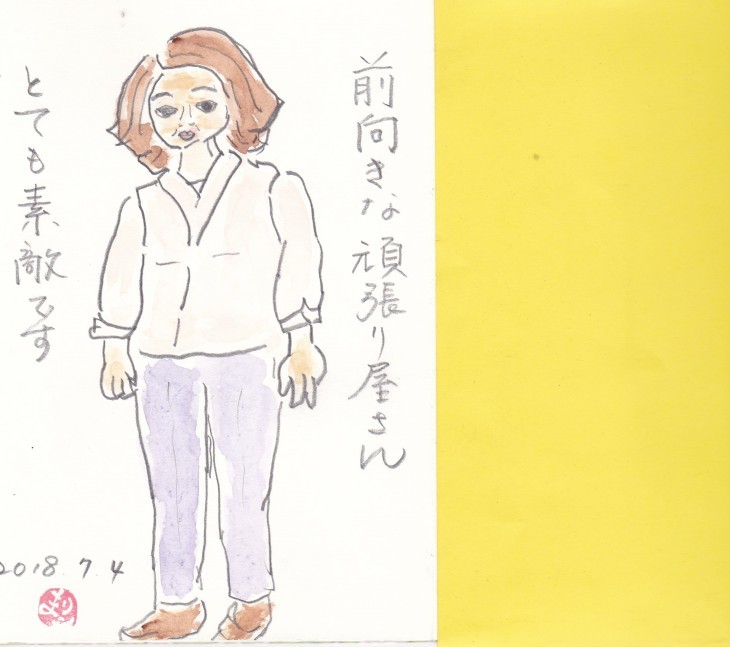 前向きな頑張り屋さん
とても素敵です
2018.7.4